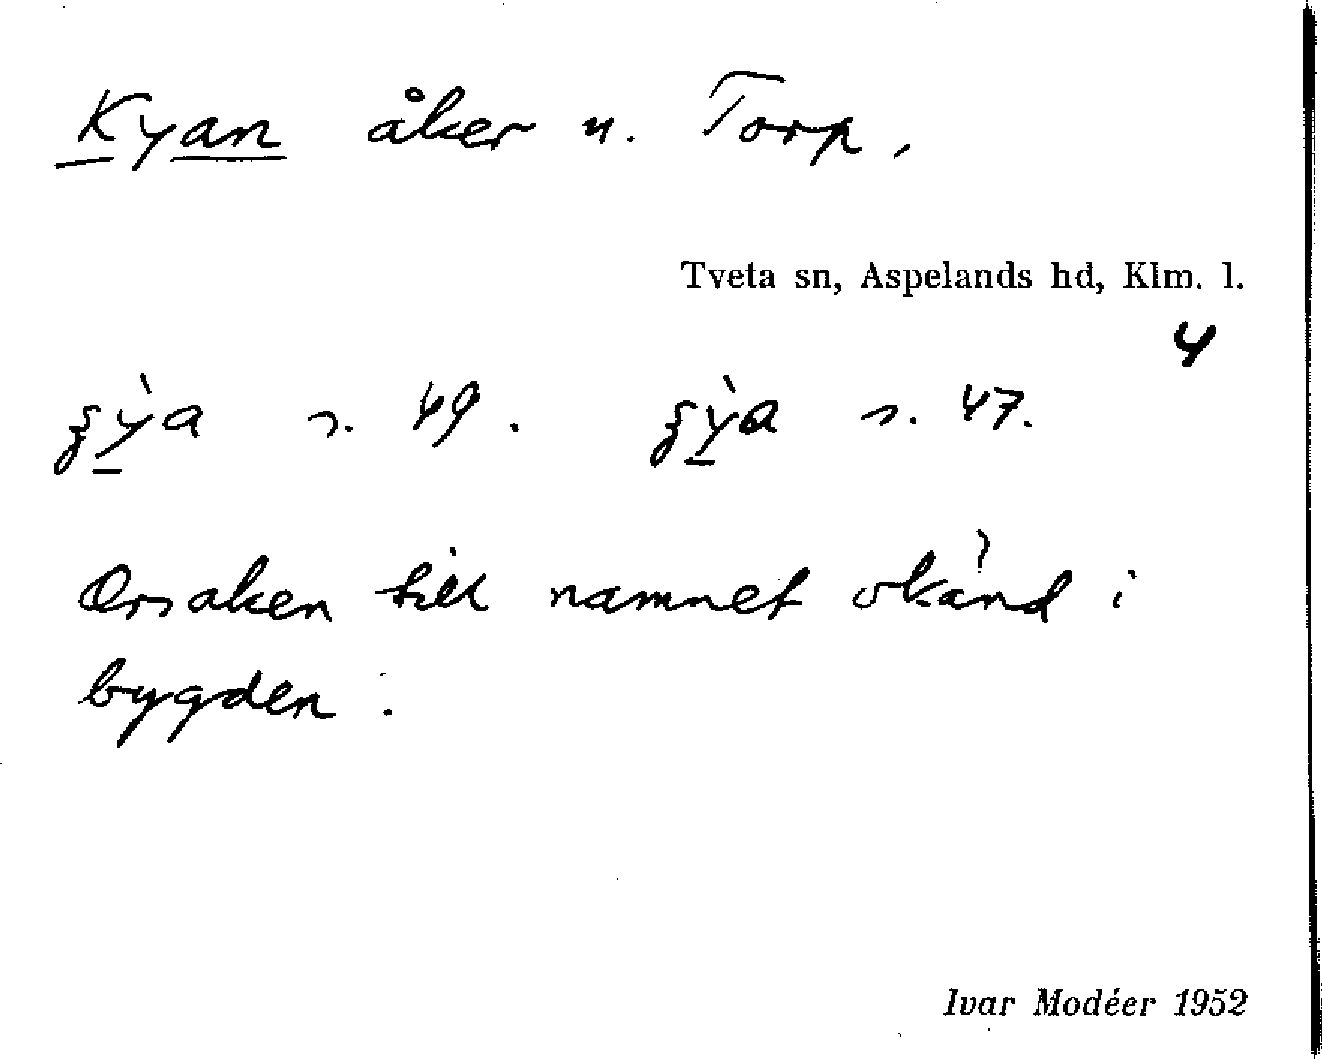 Kyan åker u. Torp,
Tveta sn, Aspelands hd, Klm. l.
4
s. 49. s. 47.
Orsaken till namnet okänd i
bygden.
Ivar Modéer 1952